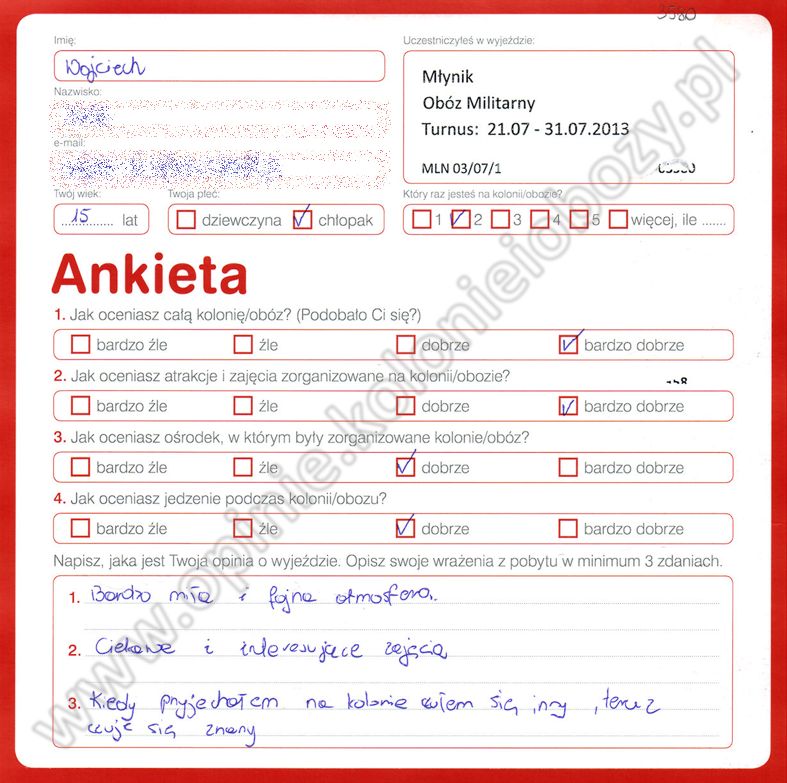 3580
Imię:
Wojciech
Nazwisko:
e-mail:
Uczestniczyłeś w wyjeździe:
Młynik
Obóz Militarny
Turnus: 21.07 - 31.07.2013
MLN 03/07/1
Twój wiek:
15 lat
Twoja płeć:
dziewczyna chłopak
Który raz jesteś na kolonii/obozie?
1 2 3 4 5 więcej, ile .......
Ankieta
1. Jak oceniasz całą kolonię/obóz? (Podobało Ci się?)
bardzo źle źle dobrze bardzo dobrze
2. Jak oceniasz atrakcje i zajęcia zorganizowane na kolonii/obozie?
bardzo źle źle dobrze bardzo dobrze
3. Jak oceniasz ośrodek, w którym były zorganizowane kolonie/obóz?
bardzo źle źle dobrze bardzo dobrze
4. Jak oceniasz jedzenie podczas kolonii/obozu?
bardzo źle źle dobrze bardzo dobrze
Napisz, jaka jest Twoja opinia o wyjeździe. Opisz swoje wrażenia z pobytu w minimum 3 zdaniach.
1. Bardzo miła i fajna atmosfera.
2. Ciekawe i interesujące zajęcia
3. Kiedy przyjechałem na kolonie czułem się inny, teraz
czuję się znany
www.opinie.kolonieiobozy.pl